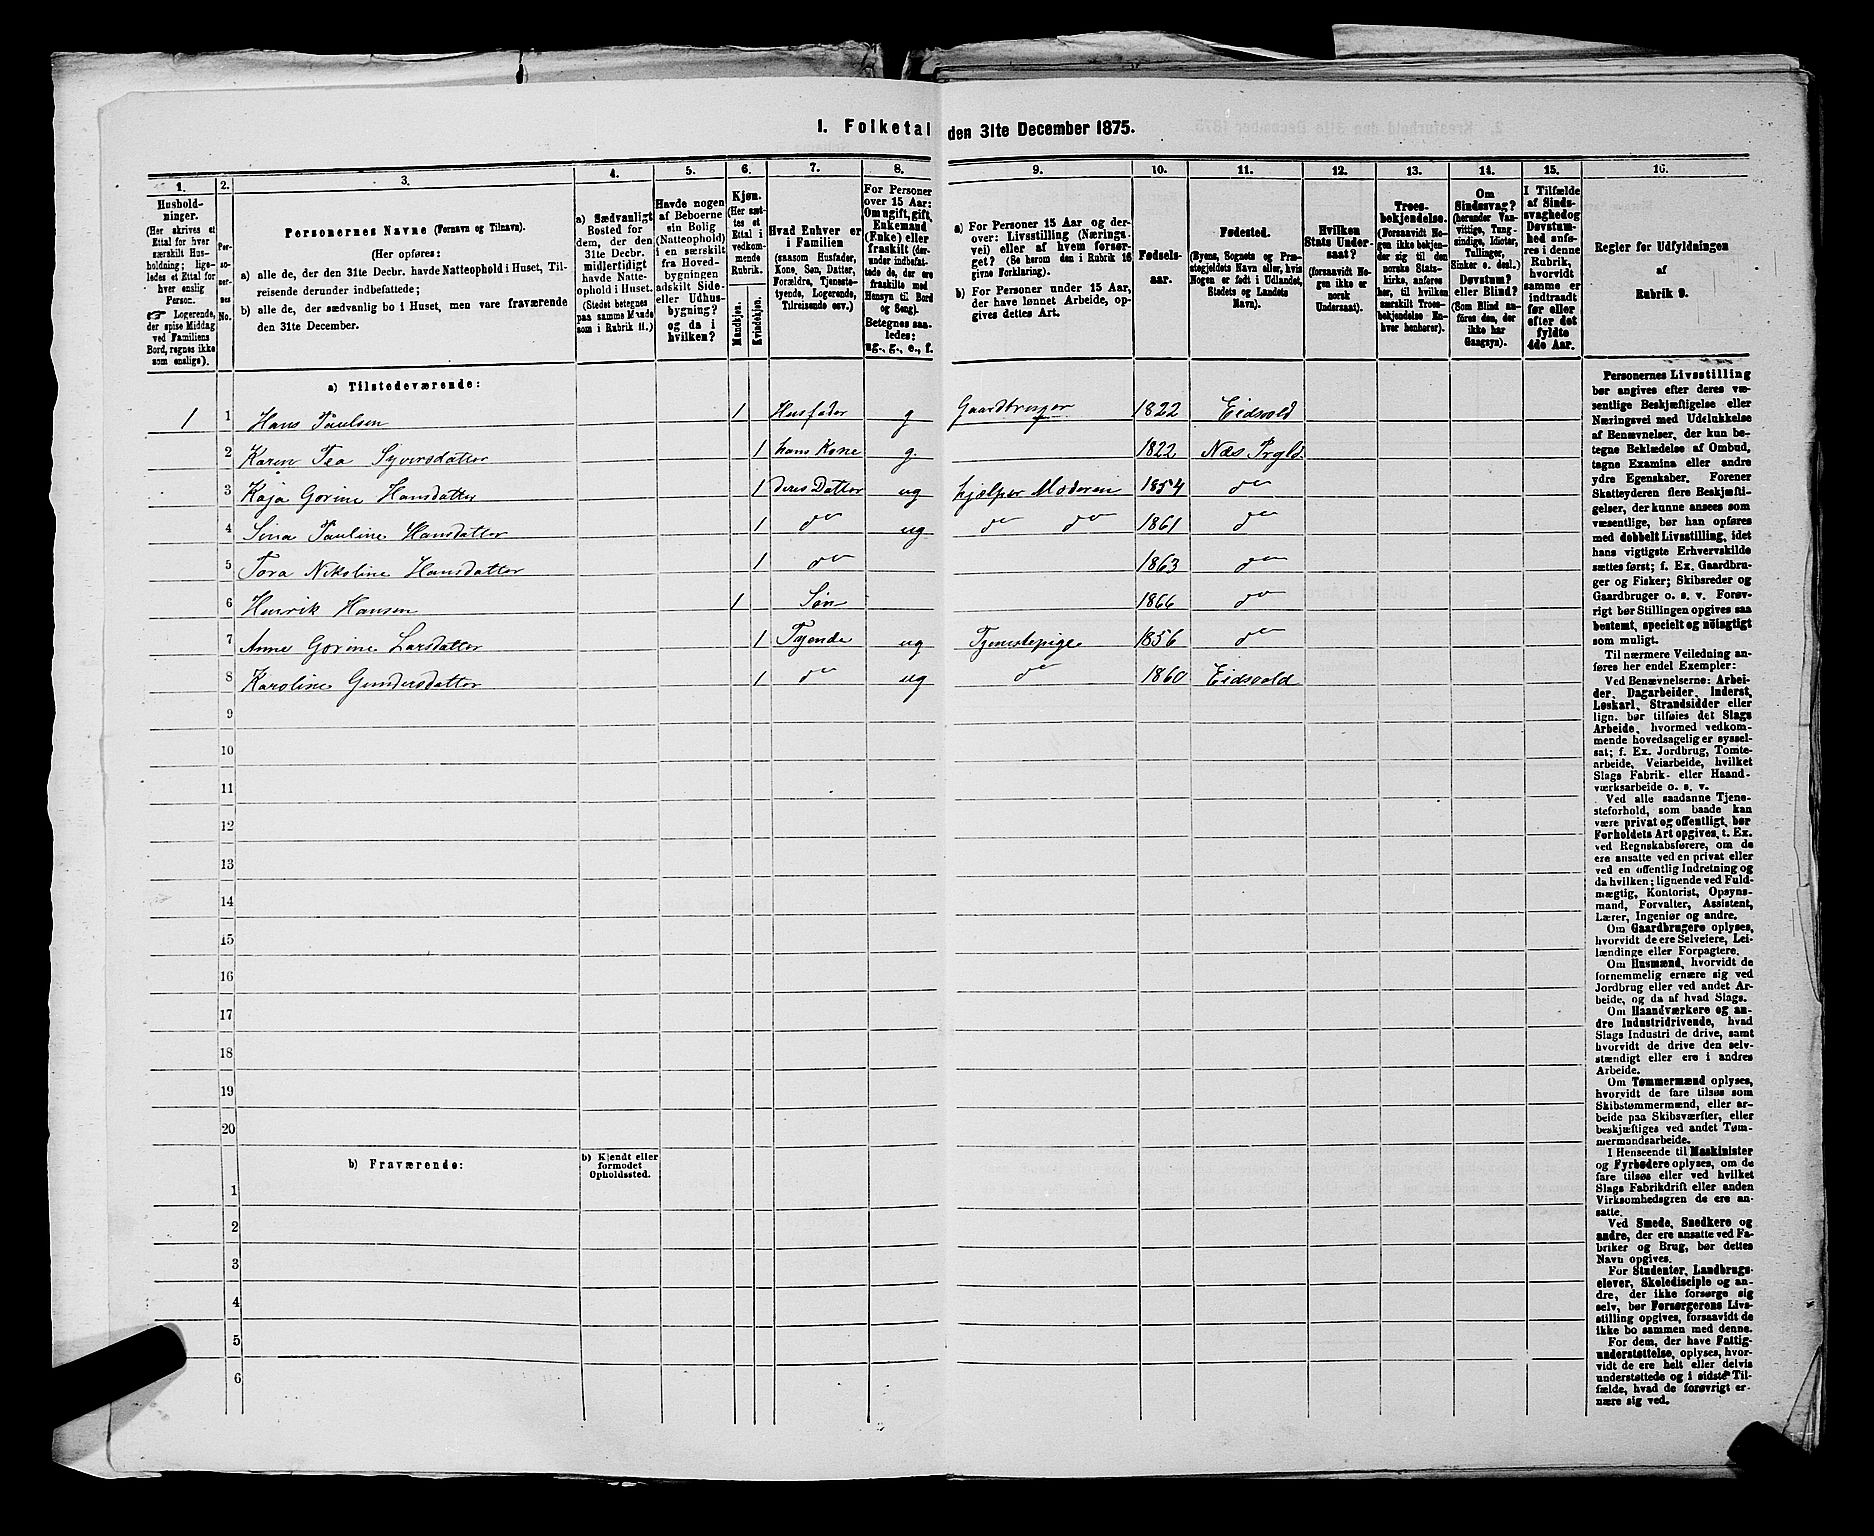 1. Folketal den 31te December 1875.
1.
Hushold-
ninger.
(Her skrives et
Ettal for hver
særskilt Hus-
holdning; lige-
ledes et Ettal for
hver enslig
Person.
☞ Logerende,
der spise Middag
ved Familiens
Bord, regnes ikke
som enslige).
2.
Per-
so-
ner-
nes
No.
3.
Personernes Navne (Fornavn og Tilnavn).
(Her opføres:
a) alle de, der den 31te Decbr. havde Natteophold i Huset, Til-
reisende derunder indbefattede;
b) alle de, der sædvanlig bo i Huset, men vare fraværende
den 31te December.
4.
a) Sædvanligt
Bosted for
dem, der den
31te Decbr.
midlertidigt
havde Natte-
ophold i Huset.
(Stedet betegnes
paa samme Maade
som i Rubrik 11.)
5.
Havde nogen
af Beboerne
sin Bolig
(Natteophold)
i en særskilt
fra Hoved-
bygningen
adskilt Side-
eller Udhus-
bygning?
og da i
hvilken?
6.
Kjøn.
(Her sæt-
tes et
Ettal i
vedkom-
mende
Rubrik.
Mandkjøn.
Kvindekjøn.
7.
Hvad Enhver er
i Familien
(saasom Husfader,
Kone, Søn, Datter,
Forældre, Tjeneste-
tyende, Logerende,
Tilreisende osv.)
8.
For Personer
over 15 Aar:
Om ugift, gift,
Enkemand
(Enke) eller
fraskilt (der-
under indbefat-
tede de, der ere
fraskilte med
Hensyn til Bord
og Seng).
Betegnes saa-
ledes:
ug., g., e., f.
9.
a) For Personer 15 Aar og der-
over: Livsstilling (Nærings-
vei) eller af hvem forsør-
get? (Se herom den i Rubrik 16
givne Forklaring).
b) For Personer under 15 Aar,
der have lønnet Arbeide, op-
gives dettes Art.
10.
Fødsels-
aar.
11.
Fødested.
(Byens, Sognets og Præ-
stegjeldets Navn eller, hvis
Nogen er født i Udlandet,
Stedets og Landets
Navn).
12.
Hvilken
Stats Under-
saat?
(forsaavidt No-
gen ikke er
norsk
Undersaat).
13.
Troes-
bekjendelse.
(Forsaavidt No-
gen ikke bekjen-
der sig til den
norske Stats-
kirke, anføres
her, til hvilken
særskilt Troes-
bekjendelse En-
hver henhører).
14.
Om
Sindssvag?
(herunder Van-
vittige, Tung-
sindige, Idioter,
Tullinger,
Sinker o. desl.)
Døvstum?
eller Blind?
(Som Blind an-
føres den, der
ikke har
Gangsyn).
15.
I Tilfælde
af Sinds-
svaghed og
Døvstum-
hed anfø-
res i denne
Rubrik,
hvorvidt
samme er
indtraadt
før eller
efter det
fyldte
4de Aar.
16.
Regler for Udfyldningen
af
Rubrik 9.
a) Tilstedeværende:
1 1 Hans Paulsen 1 Husfader g Gaardbruger 1822 Eidsvold
2 Karen Tea Syversdatter 1 hans Kone g. 1822 Næs Prgld.
3 Kaja Gorine Hansdatter 1 deres Datter ug hjælper Moderen 1854 do
4 Sina Pauline Hansdatter 1 do ug do do 1861 do
5 Tora Nikoline Hansdatter 1 do 1863 do
6 Henrik Hansen 1 Søn 1866 do
7 Anne Gorine Larsdatter 1 Tyende ug Tjenestepige 1856 do
8 Karoline Gundersdatter 1 do ug do 1860 Eidsvold
9
10
11
12
13
14
15
16
17
18
19
20
b) Fraværende:
b) Kjendt eller
formodet
Opholdssted.
1
2
3
4
5
6
Personernes Livsstilling
bør angives efter deres væ-
sentlige Beskjæftigelse eller
Næringsvei med Udelukkelse
af Benævnelser, der kun be-
tegne Beklædelse af Ombud,
tagne Examina eller andre
ydre Egenskaber. Forener
Skatteyderen flere Beskjæfti-
gelser, der kunne ansees som
væsentlige, bør han opføres
med dobbelt Livsstilling, idet
hans vigtigste Erhvervskilde
sættes først; f. Ex. Gaardbru-
ger og Fisker; Skibsreder og
Gaardbruger o. s. v. Forøv-
rigt bør Stillingen opgives saa
bestemt, specielt og nöiagtigt
som muligt.
Til nærmere Veiledning an-
føres her endel Exempler:
Ved Benævnelserne: Arbei-
der, Dagarbeider, Inderst,
Løskarl, Strandsidder eller
lign. bør tilføies det Slags
Arbeide, hvormed vedkom-
mende hovedsagelig er syssel-
sat; f. Ex. Jordbrug, Tomte-
arbeide, Veiarbeide, hvilket
Slags Fabrik- eller Haand-
værksarbeide o. s. v.
Ved alle saadanne Tjene-
steforhold, som baade kan
være privat og offentligt, bør
Forholdets Art opgives, t. Ex.
ved Regnskabsførere, om de
ere ansatte ved en privat eller
ved en offentlig Indretning og
da hvilken; lignende ved Fuld-
mægtig, Kontorist, Opsyns-
mand, Forvalter, Assistent,
Lærer, Ingeniør og andre.
Om Gaardbrugere oplyses,
hvorvidt de ere Selveiere, Lei-
lændinge eller Forpagtere.
Om Husmænd, hvorvidt de
fornemmelig ernære sig ved
Jordbrug eller ved andet Ar-
beide, og da af hvad Slags.
Om Haandværkere og an-
dre Industridrivende, hvad
Slags Industri de drive, samt
hvorvidt de drive den selv-
stændigt eller ere i andres
Arbeide.
Om Tømmermænd oplyses,
hvorvidt de fare tilsøs som
Skibstømmermænd, eller ar-
beide paa Skibsværfter, eller
beskjæftiges ved andet Tøm-
mermandsarbeide.
I Henseende til Maskinister
og Fyrbødere oplyses, om de
fare tilsøs eller ved hvilket
Slags Fabrikdrift eller anden
Virksomhedsgren de ere an-
satte.
Ved Smede, Snedkere og
andre, der ere ansatte ved Fa-
briker og Brug, bør dettes
Navn opgives.
For Studenter, Landbrugs-
elever, Skoledisciple og an-
dre, der ikke forsørge sig
selv, bør Forsørgerens Livs-
stilling opgives, forsaavidt de
ikke bo sammen med denne.
For dem, der have Fattig-
understøttelse, oplyses, hvor-
vidt de ere helt eller delvis
understøttede og i sidste Til-
fælde, hvad de forøvrigt er-
nære sig ved.